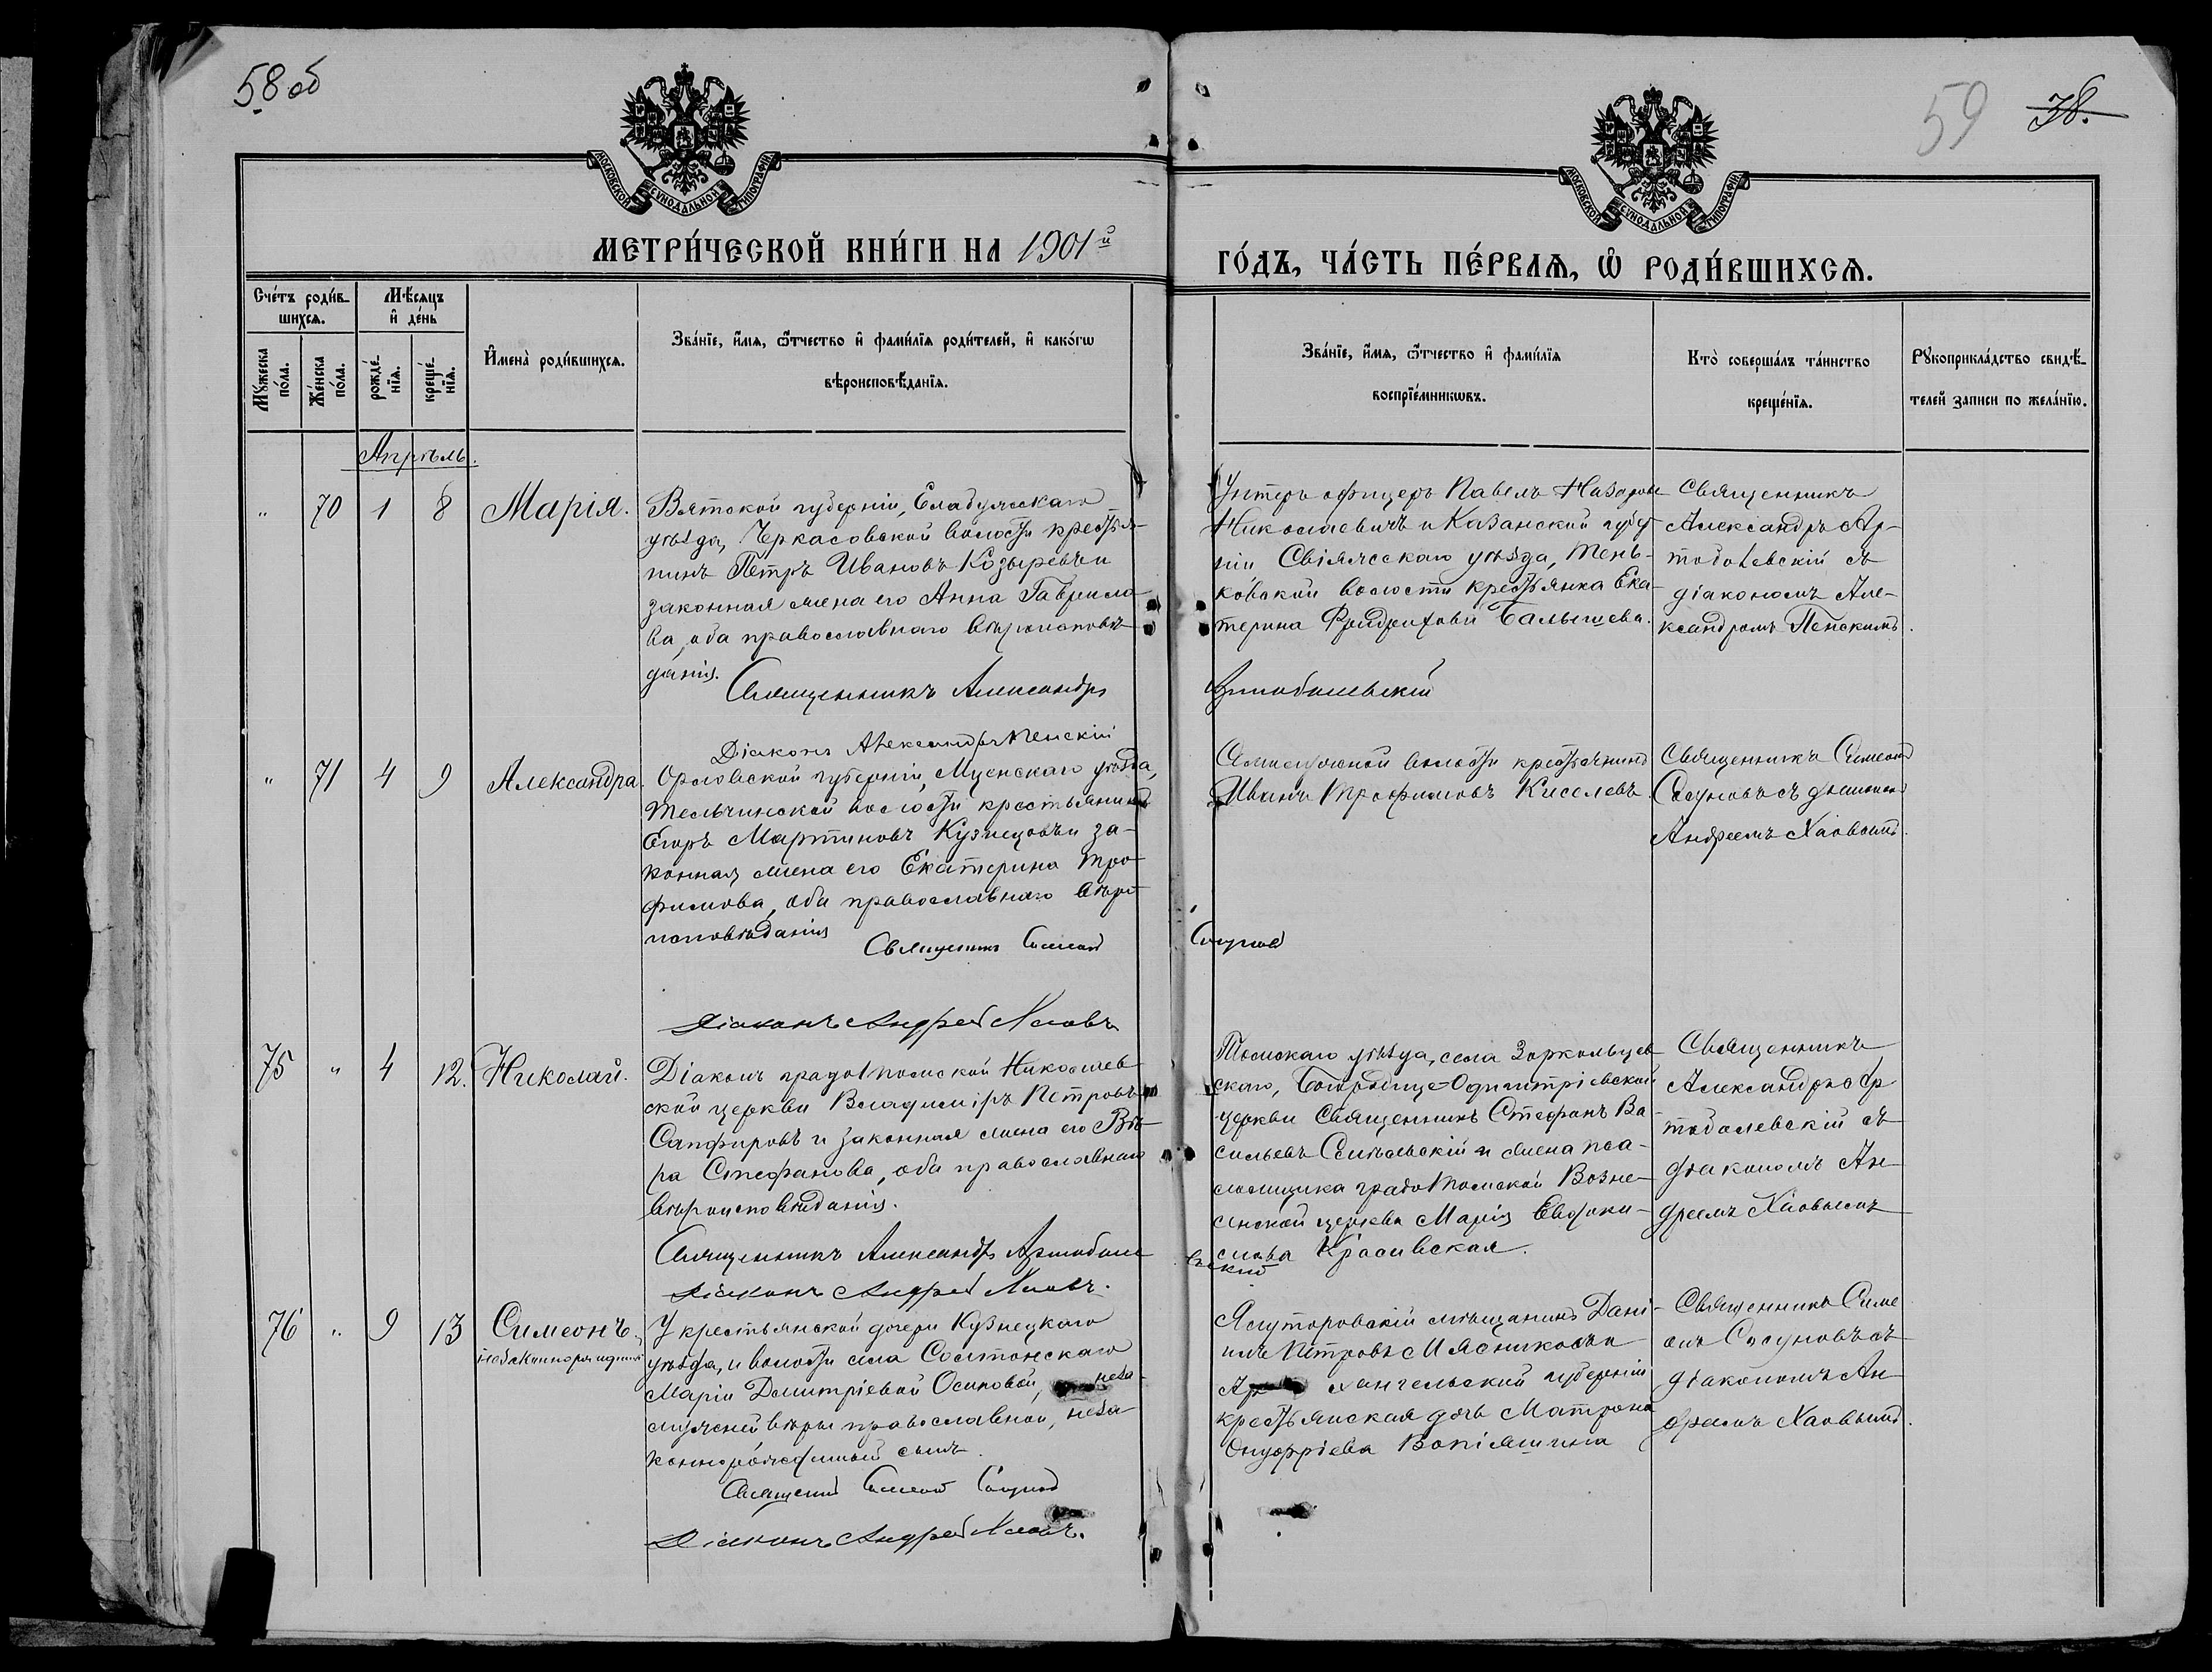 58 об
59 38.
МОСКОВСКОЙ СѴНОДАЛЬНОЙ ТИПОГРАФІИ
МОСКОВСКОЙ СѴНОДАЛЬНОЙ ТИПОГРАФІИ
МЕТРИ́ЧЕСКОЙ КНИ́ГИ НА 1901й
ГО́ДЪ, ЧА́СТЬ ПЕ́РВАѦ, Ѡ҆ РОДИ́ВШИХСѦ.
Сче́тъ роди́в-
шихсѧ.
Мꙋ́жеска
по́ла.
Же́нска
по́ла.
Мѣ́сѧцъ
и҆ де́нь
рожде́-
нїѧ.
креще́-
нїѧ.
И҆мена̀ роди́вшихсѧ.
Зва́нїе, и҆́мѧ, ѻ҆́тчество и҆ фами́лїѧ роди́телей, и҆ како́гѡ
вѣроисповѣ́данїѧ.
Зва́нїе, и҆́мѧ, ѻ҆́тчество и҆ фами́лїѧ
воспрїе́мникѡвъ.
Кто̀ соверша́лъ та́инство
креще́нїѧ.
Рꙋкоприкла́дство свидѣ́-
телей записи по жела́нїю.
Апрѣль.
" 70 1 8 Марія.
Вятской губерніи, Елабужскаго
уѣзда, Черкасовской волости крестья-
нинъ Петръ Ивановъ Козыревъ и
законная жена его Анна Гаврило-
ва, оба православнаго вѣроисповѣ-
данія.
Священникъ Александръ
Діаконъ Александръ Пенскій
Унтеръ офицеръ Павелъ Назаровъ
Николаевичъ и Казанской губер-
ніи Свіяжскаго уѣзда, Тень-
ковской волости крестьянка Ека-
терина Балышева.
Артоболевскій
Священникъ
Александръ Ар-
тоболевскій съ
діакономъ Але-
ксандромъ Пенскимъ.
" 71 4 9 Александра.
Орловской губерніи, Мценскаго уѣзда,
Тельчинской волости крестьянинъ
Егоръ Мартиновъ Кузнецовъ и за-
конная жена его Екатерина Тро-
фимова, оба православнаго вѣро-
исповѣданія
Священникъ Симеонъ
Діаконъ Андрей Хаовъ
Семилужной волости крестьянинъ
Иванъ Трофимовъ Киселевъ.
Сосуновъ
Священникъ Симеонъ
Сосуновъ съ діакономъ
Андреемъ Хаовымъ.
75 " 4 12. Николай.
Діаконъ градо-Томской Николаев-
ской церкви Владиміръ Петровъ
Сапфировъ и законная жена его Вѣ-
ра Стефанова, оба православнаго
вѣроисповѣданія.
Священникъ Александръ Артоболе-
вскій
Діаконъ Андрей Хаовъ.
Томскаго уѣзда, села Зоркольцев-
скаго, Богородице-Одигитріевской
церкви Священникъ Стефанъ Ва-
сильевъ и жена пса-
ломщика градо Томской Возне-
сенской церкви Марія Евфими-
Красивская.
Священникъ
Александръ Ар-
тоболевскій съ
діакономъ Ан-
дреемъ Хаовымъ
76 " 9 13 Симеонъ,
незаконнорожденный
У крестьянской дочери Кузнецкаго
уѣзда, и волости села Солтонскаго
Маріи Димитріевой Осиповой, неза-
мужней вѣры православной, неза-
коннорожденный сынъ.
Священникъ Симеонъ Сосуновъ
Діаконъ Андрей Хаовъ.
Ялуторовскій мѣщанинъ Дані-
илъ Петровъ Мясниковъ и
Архангельской губерніи
крестьянская дочь Матрона
Онуфріева
Священникъ Симе-
онъ Сосуновъ съ
діакономъ Ан-
дреемъ Хаовымъ.